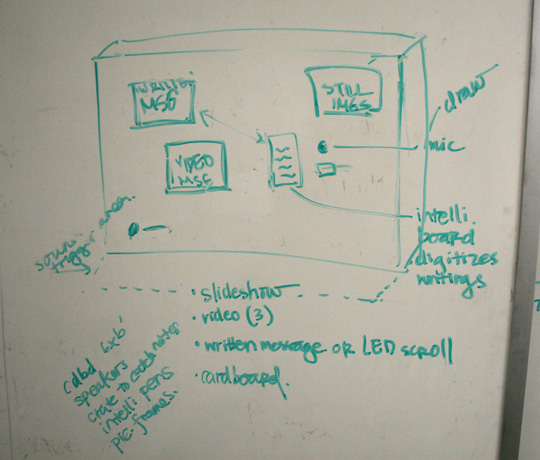 WRITTEN
MSG
STILL
IMGS
draw
VIDEO
MSG
mic
intelli
board
digitizes
writings
sound
trigger
• slideshow
• video (3)
• written message OR LED SCROLL
• cardboard.
cdbd 6x6'
speakers
crate to catch notes
intelli pens
pic. frames.